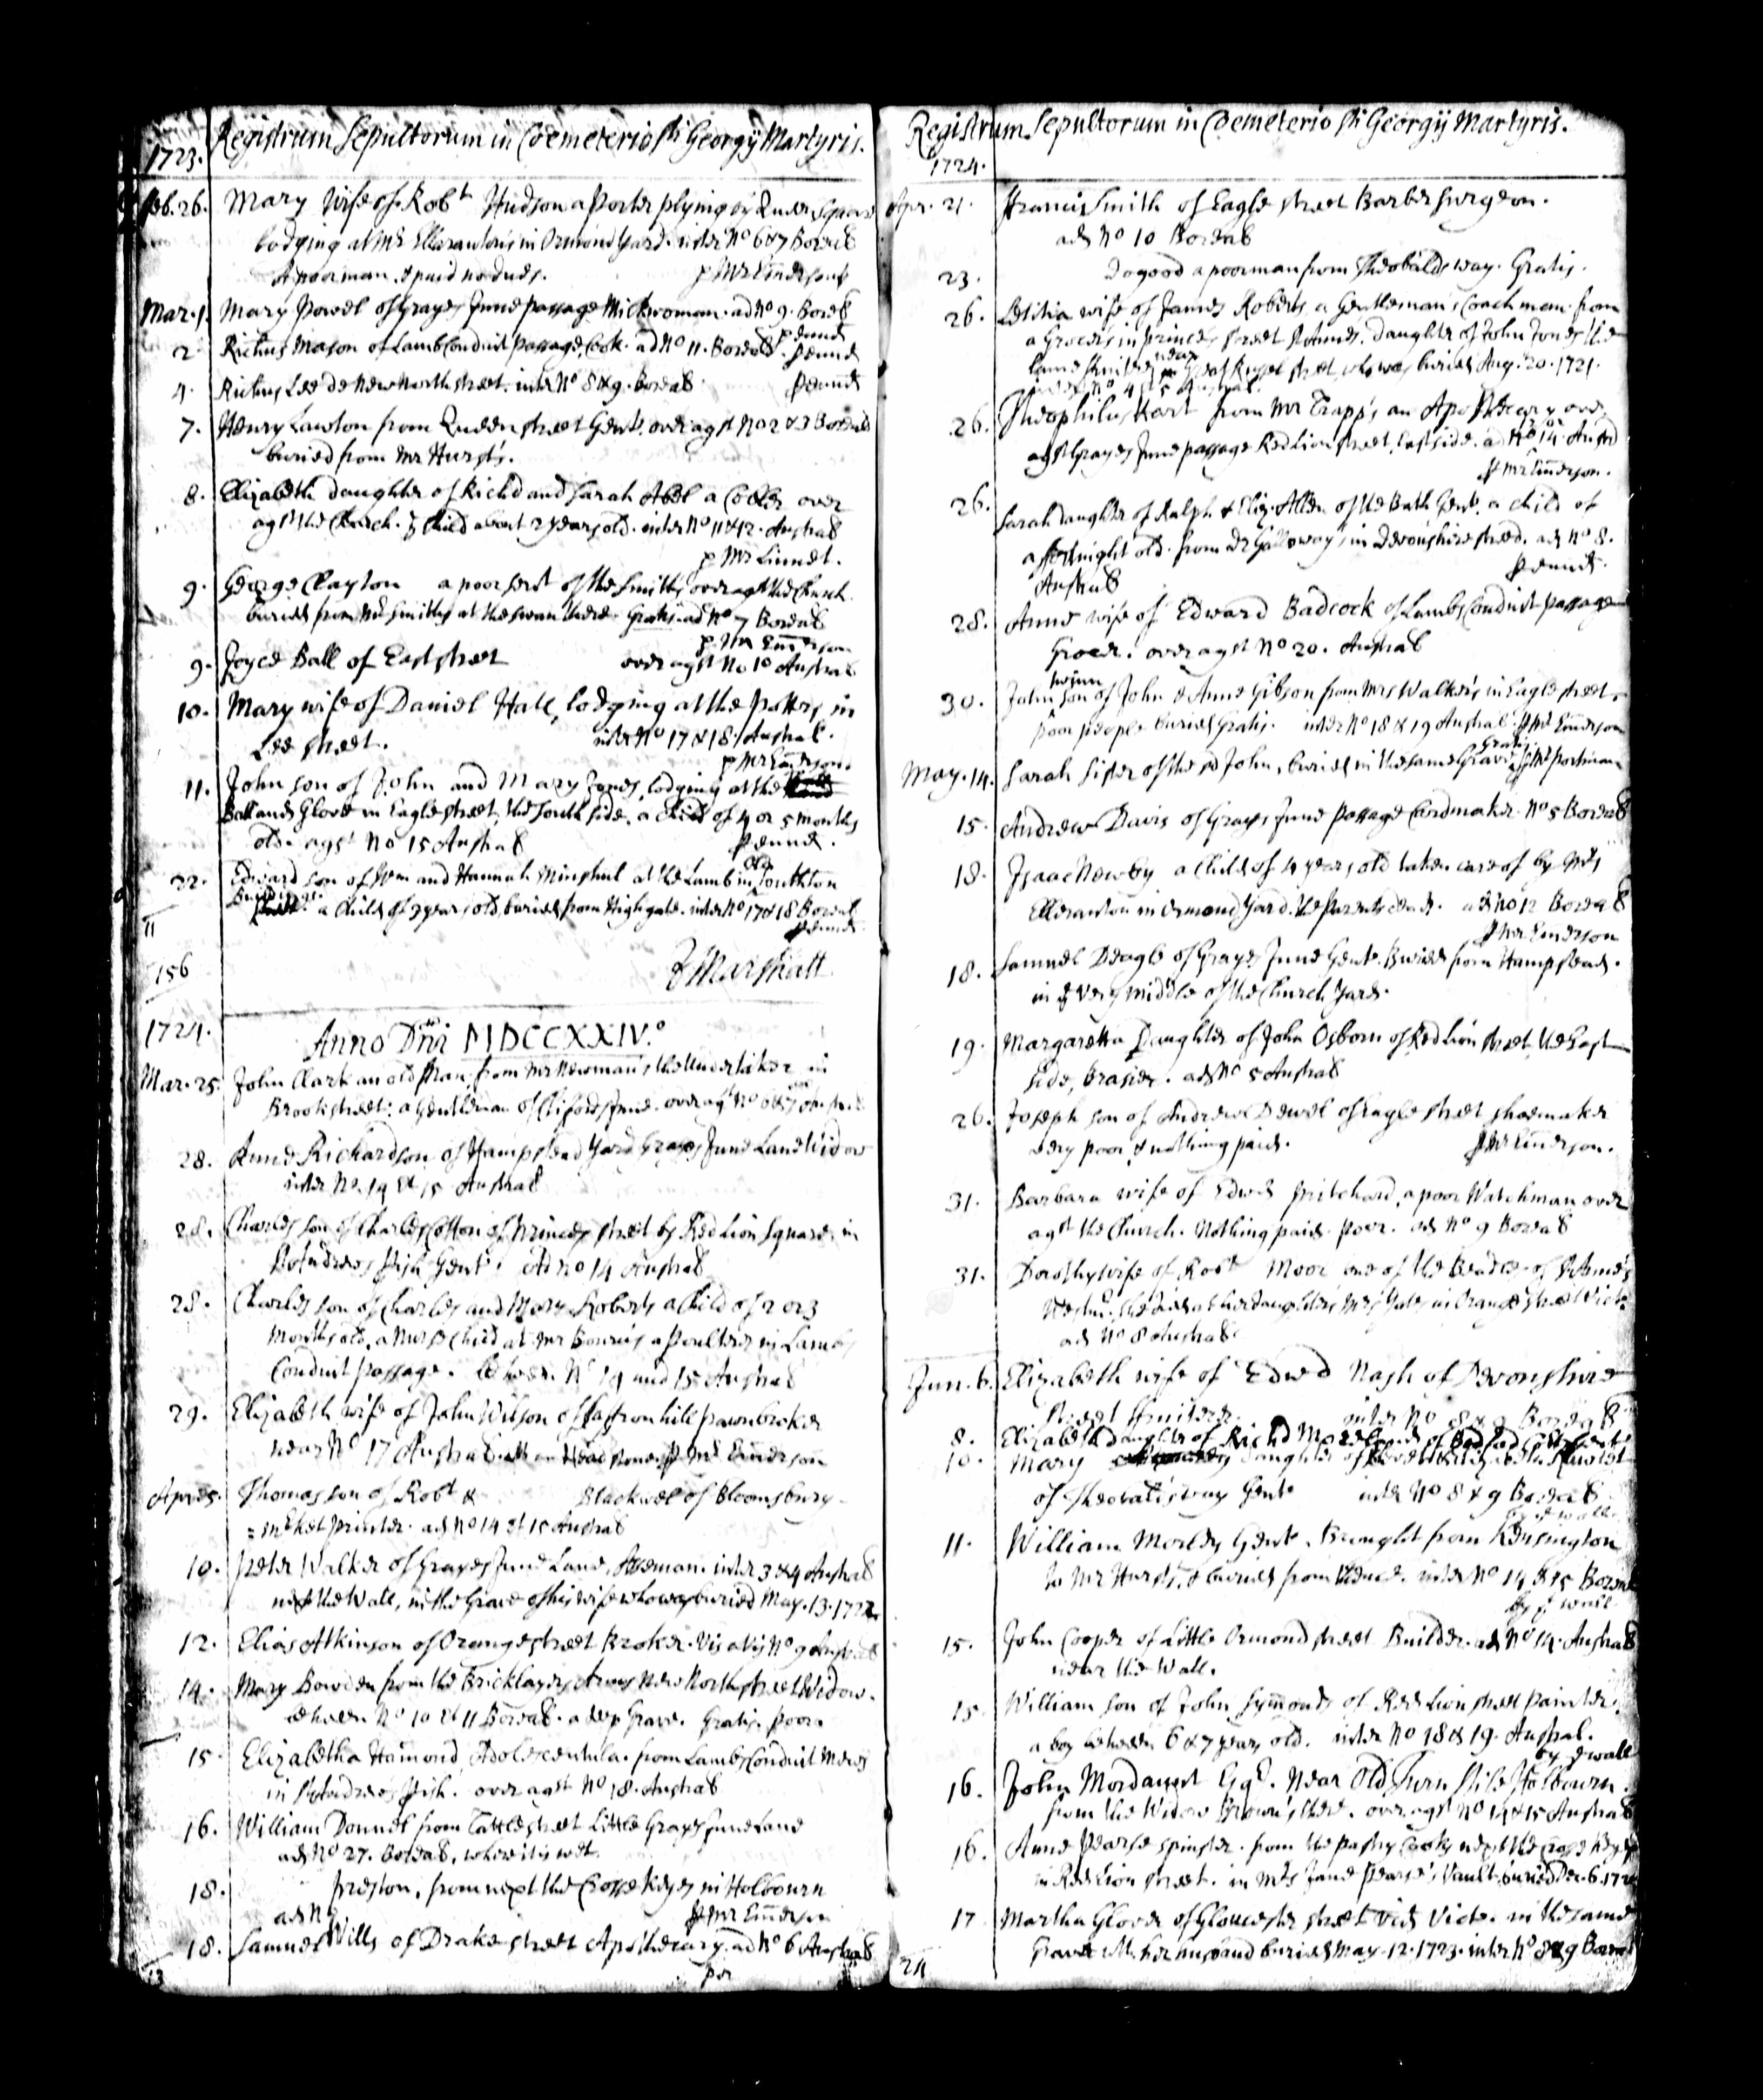 Registrum Sepultorum in Coemeterio Sti Georgij Martyris.
1723.
Feb. 26. Mary Wife of Robt Hudson a Porter plying by Queen Square
lodging at Mrs in Ormond Yard. inter No 6 & 7 Boreal
A poor man & paid no dues. p Mr Emerson
Mar. 1. Mary Powel of Grayes Inne passage Milkwoman. ad No 9. Boreal
p eund
2 Richus Mason of Lamb Conduit passage, Cook. ad No 11. Boreal. p eund
4. Richus Lee De New North street. inter No 8 & 9. Boreal. p eund
7. Henry Lawton from Queen street Gent. over agst No 2 & 3 Boreal
buried from Mr Hurst's.
8. Elizabeth daughter of Richd and Sarah Abel a Cobler over
agst the Church. ye Child about 2 years old. inter No 11 & 12. Austral
p Mr Linnet.
9. George Clayton a poor servt of the Smiths over agst the Church
buried from Mr Smiths at the Swan there. Gratis. ad No 7 Boreal
p. Mr Emerson
9. Joyce Ball of East street over agst No 10 Austral
10. Mary wife of Daniel Hall, lodging at the Potters in
Lee street. inter No 17 & 18. Austral.
p Mr Emerson.
11. John son of John and Mary Jones, lodging at the
Ball and Glove in Eagle street, the South side. a Child of 4 or 5 months
old. agst No 15 Austral p eund.
22. Edward son of Wm and Hannah Minshul at the Lamb in old Southton
Buildings. a Child of 3 years old, buried from Highgate. inter No 17 & 18 Boreal
p eund.
11
156
J Marshall
1724.
Anno Dni MDCCXXIV.o
Mar. 25. John Clark an old Man, from Mr Newman's the Undertaker in
Brook street: a Gentleman of Cliffords Inne. over agst No 6 & 7 Austral
28. Anne Richardson of Hampstead Yard Grayes Inne Lane Widow
inter No 14 et 15 Austral
28. Charles son of Charles Cotton of Princes street by Red Lion Square, in
St Andrews Psh Gent. Ad No 14 Austral
28. Charles son of Charles and Mary Roberts a Child of 2 or 3
months old, a Nurse Child at Mr a Poulterers in Lambs
Conduit passage. between No 14 and 15 Austral
29. Elizabeth wife of John Wilson of Saffron hill pawnbroker
near No 17 Austral p Mr Emerson
Apr. 5. Thomas son of Robt & Blackwel of Bloomsbury
= mrket Printer. ad No 14 et 15 Austral
10. Peter Walker of Grayes Inne Lane, inter 3 & 4 Austral
next the Wall, in the Grave of his wife who was buried May. 13. 1722.
12. Elias Atkinson of Orange street Broker. Vis a Vis No 9 Austral
14. Mary Bowden from the Bricklayers Arms New North street Widow.
between No 10 et 11 Boreal. a deep Grave. Gratis. poor.
15. Elizabetha Hamond, Adolescentula. from Lambs Conduit Mews
in St Andrews Psh. over agst No 18. Austral
16. William Donnel from street Little Grayes Inne Lane
ad No 27. Boreal, where it is wet.
18. Preston, from next the Crosse Keyes in Holbourn
ad N p Mr Emerson
18. Samuel Wills of Drake street Apothecary. ad No 6 Austral
per
13
Registrum Sepultorum in Coemeterio Sti Georgij Martyris.
1724.
Apr. 21. Francis Smith of Eagle street Barber Surgeon.
ad No 10 Boreal
23. Dogood a poor man from Theobalds way. Gratis.
26. Letitia wife of James Roberts a Gentleman's Coachman. from
a Grocer's in Princes street St Annes. daughter of John Jones the
near Great Russel street, who was buried Aug. 20. 1721.
inter No 4 et 5 Austral.
26. Theophilus from Mr Trapp's an Apothecary over
agst Grayes Inne passage Red Lion street, East side. ad No 14. Austral
p Mr Emerson.
26. Sarah daughter of Ralph & Eliz. Allen of the Bath Gent. a Child of
a fortnight old. from Dr Galloway's in Devonshire street. ad No 8.
Austral p eund.
28. Anne wife of Edward Badcock of Lambs Conduit passage
Grocer. over agst No 20. Austral
30. John son of John & Anne Gibson from Mrs Walker's in Eagle street.
poor people. buried Gratis. inter No 18 & 19 Austral. p Mr Emerson
Gratis
May. 14. Sarah Sister of the sd John, buried in the same Grave. p Mr Portman
15. Andrew Davis of Grayes Inne Passage Cardmaker. No 5 Boreal
18. Isaac Newby a Child of 4 years old taken care of by Mrs
in Ormond Yard. the Parents dead. ad No 12 Boreal
p Mr Emerson
18. Samuel Deagle of Grayes Inne Gent. Buried from Hampstead.
in ye very middle of the Church Yard.
19. Margaretta Daughter of John Osborn of Red Lion street, the East
side, brasier. ad No 5 Austral
26. Joseph son of Andrew Dewel of Eagle street shoemaker
very poor, & nothing paid. p Mr Emerson.
31. Barbara wife of Edwd Pritchard, a poor Watchman over
agst the Church. Nothing paid. poor. ad No 9 Boreal
31. Dorothy wife of Robt Moor one of the Beadles of St Anne's
Westmr. She died at her daughters Mrs Yates in Orange street
ad No 8 Austral
Jun. 6. Elizabeth wife of Edwd Nash of Devonshire
street inter No 8 & 9 Boreal
8. Elizabeth daughter of Richd
10. Mary daughter of
of Theobalds way Gent inter No 8 & 9 Boreal
by ye wall.
11. William Morley Gent. Brought from Kensington
to Mr Hursts, & buried from thence. inter No 14 & 15 Boreal
by ye wall.
15. John Cooper of Little Ormond street Builder. ad No 14. Austral
near the Wall.
15. William son of John Symonds of Red Lion street painter.
a boy between 6 & 7 years old. inter No 18 & 19. Austral.
by ye wall
16. John Mordaunt Esqr. near Old Turn stile Holbourn.
from the Widow Brown's there. over agst No 14 & 15 Austral
16. Anne Pearse spinster. from the Pastry Cooks next the Crosse Keyes
in Red Lion street. in Mrs Jane Pearse's Vault, buried Dec. 6. 172
17 Martha Glover of Gloucester street in the same
Grave with her husband buried May. 12. 1723. inter No 8 & 9 Boreal
24